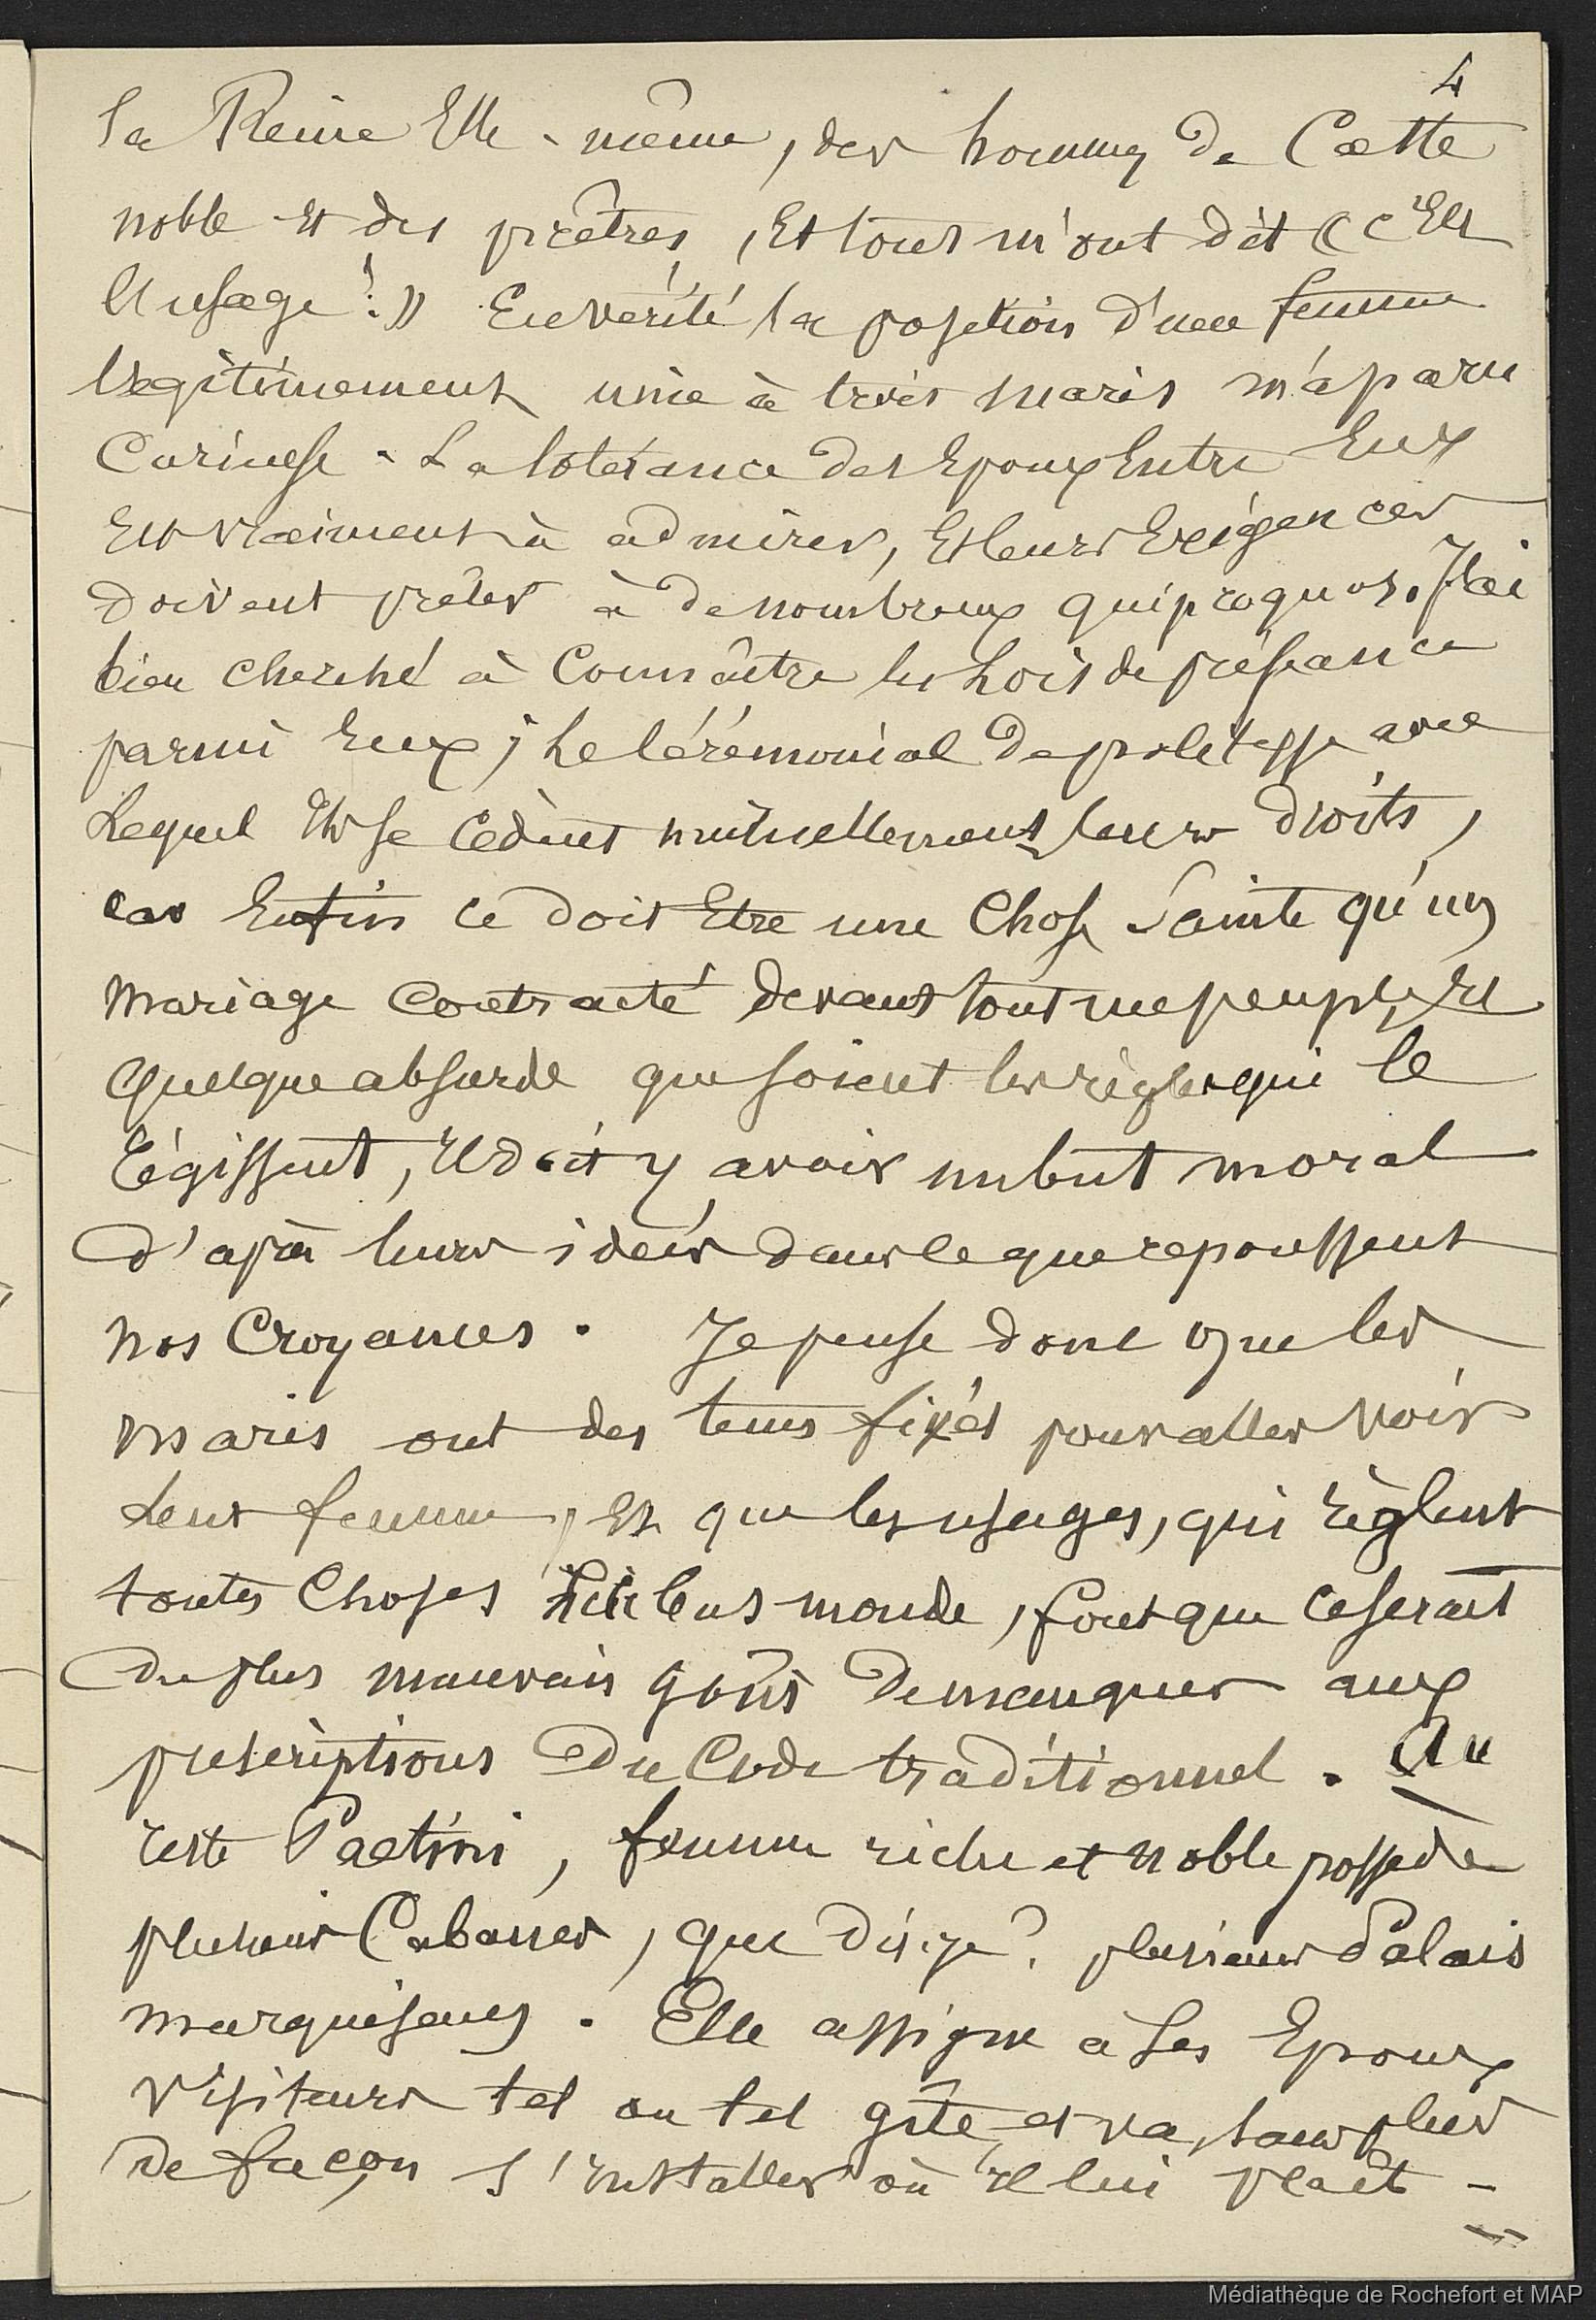 4
la Reine Elle-même, des hommes de Caste
noble et des prêtres, Et tous m'ont dit « C'Est
l'usage ! » En vérité la position d'une femme
légitimement unie à trois maris m'a paru
Curieuse - La tolérance des Epoux Entre Eux
Est vraiment à admirer, Et leurs Exigences
doivent prêter à de nombreux quiproquos. J'ai
bien Cherché à Connaître les Lois de préséance
parmi Eux ; Le Cérémonial de politesse avec
Lequel Ils se Cèdent mutuellement leurs droits,
car Enfin ce doit Etre une Chose Sainte qu'un
Mariage Contracté devant tout un peuple, Et
Quelque absurde que soient les règles qui le
régissent, Il doit y avoir un but moral
d'après leurs idées dans ce que repoussent
nos Croyances. Je pense donc que les
maris ont des tems fixés pour aller voir
Leur femme, Et que les usages, qui règlent
toutes Choses en ce bas monde, font que ce serait
du plus mauvais goût de manquer aux
prescriptions du Code traditionnel. Au
reste Paetini, femme riche et noble possède
plusieurs Cabanes, que dis-je ? plusieurs Palais
marquisans. Elle assigne à ses Epoux
Visiteurs tel ou tel gîte et va, sans plus
de façon s'Installer où Il lui plaît -
Médiathèque de Rochefort et MAP